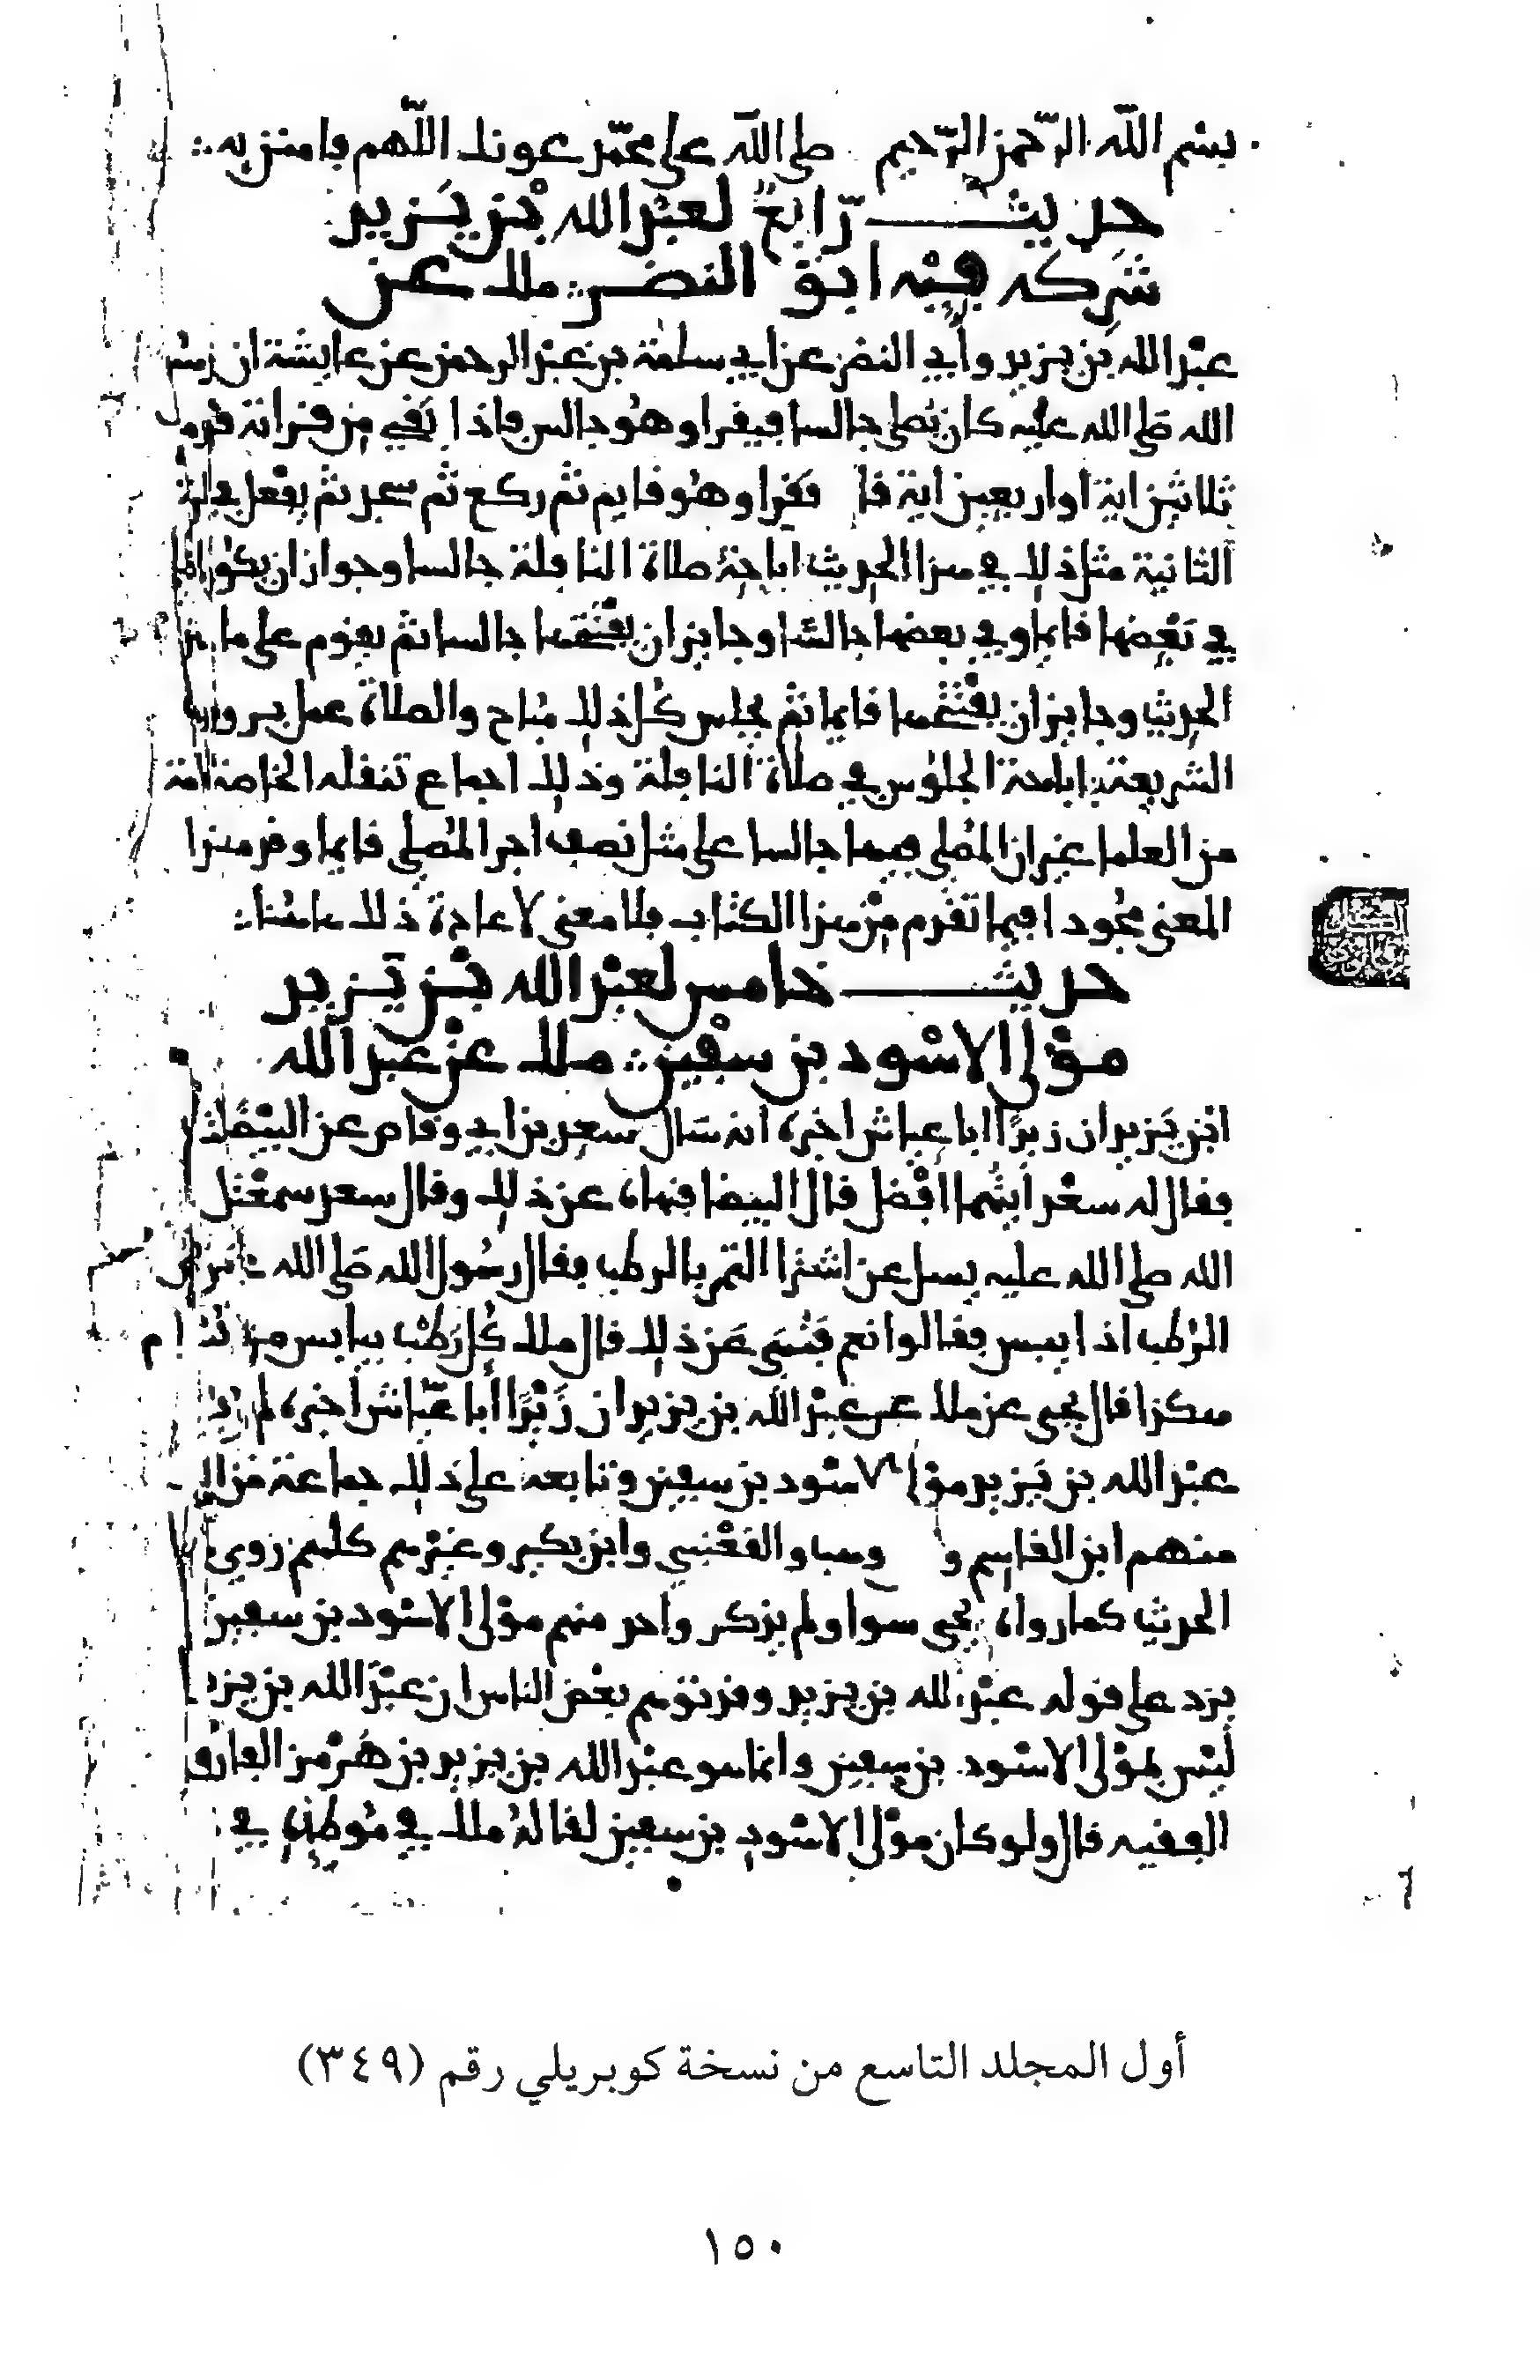 بسم الله الرحمن الرحيم صلى الله على محمد عونك اللهم يا من به
حديث رابع لعبد الله بن يزيد
شركه فيه ابو النضر ملك عن
عبد الله بن يزيد وأبي النضر عن ابي سلمة بن عبد الرحمن عن عايشة ان رسول
الله صلى الله عليه كان يصلي جالسا فيقرا وهو جالس فاذا بقي من قراته قدر ما
ثلاثين اية او اربعين اية قام فقرا وهو قايم ثم ركع ثم سجد ثم يفعل في الركعة
الثانية مثل ذلك في هذا الحديث اباحة صلاة النافلة جالسا وجواز ان يكون المصلي
في بعضها قايما وفي بعضها جالسا وجايز ان يفتتحها جالسا ثم يقوم على ما في هذا
الحديث وجايز ان يفتتحها قايما ثم يجلس كل ذلك مباح والصلاة عمل بر وردت
الشريعة باباحة الجلوس في صلاة النافلة وذلك اجماع تنقله الخاصة والعامة
من العلما غير ان المصلي فيها جالسا على مثل نصف اجر المصلي قايما وقد مر هذا
المعنى مجودا فيما تقدم من هذا الكتاب فلا معنى لاعادة ذلك هاهنا
حديث خامس لعبد الله بن يزيد
مولى الاسود بن سفين ملك عن عبد الله
ابن يزيد ان زيدا ابا عياش اخبره انه سال سعد بن ابي وقاص عن البيضا بالسلت
فقال له سعد ايتهما افضل قال البيضا فنهاه عن ذلك وقال سعد سمعت رسول
الله صلى الله عليه يسل عن اشترا التمر بالرطب فقال رسول الله صلى الله عليه اينقص
الرطب اذا يبس فقالوا نعم فنهى عن ذلك قال ملك كل رطب بيابس من نوعه حرام
هكذا قال يحيى عن ملك عن عبد الله بن يزيد ان زيدا أبا عياش أخبره لم يقل
عبد الله بن يزيد مولى الاسود بن سفين وتابعه على ذلك جماعة من الرواة
منهم ابن القاسم وابن وهب والقعنبي وابن بكير وغيرهم كلهم روى
الحديث كما رواه يحيى سوا ولم يذكر واحد منهم مولى الاسود بن سفين
يزد على قوله عبد الله بن يزيد وقد توهم بعض الناس ان عبد الله بن يزيد
ليس بمولى الاسود بن سفين وانما هو عبد الله بن يزيد بن هرمز القارئ
الفقيه قال ولو كان مولى الاسود بن سفين لقاله ملك في موطئه في
أول المجلد التاسع من نسخة كوبريلي رقم (٣٤٩)
١٥٠